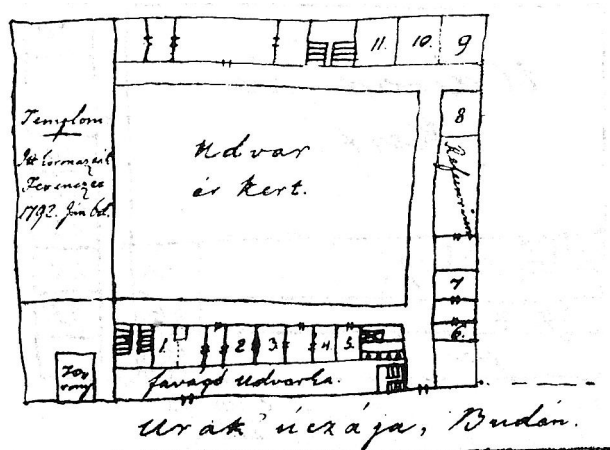 11. 10. 9
8
Templom
Itt koronazák
Ferenczet
1792. Jún 6d.
Udvar
és kert.
Refectorium
7
6.
1. 2 3. 4 5.
favágó udvarka.
Tor
rony
Urak úczája, Budán.